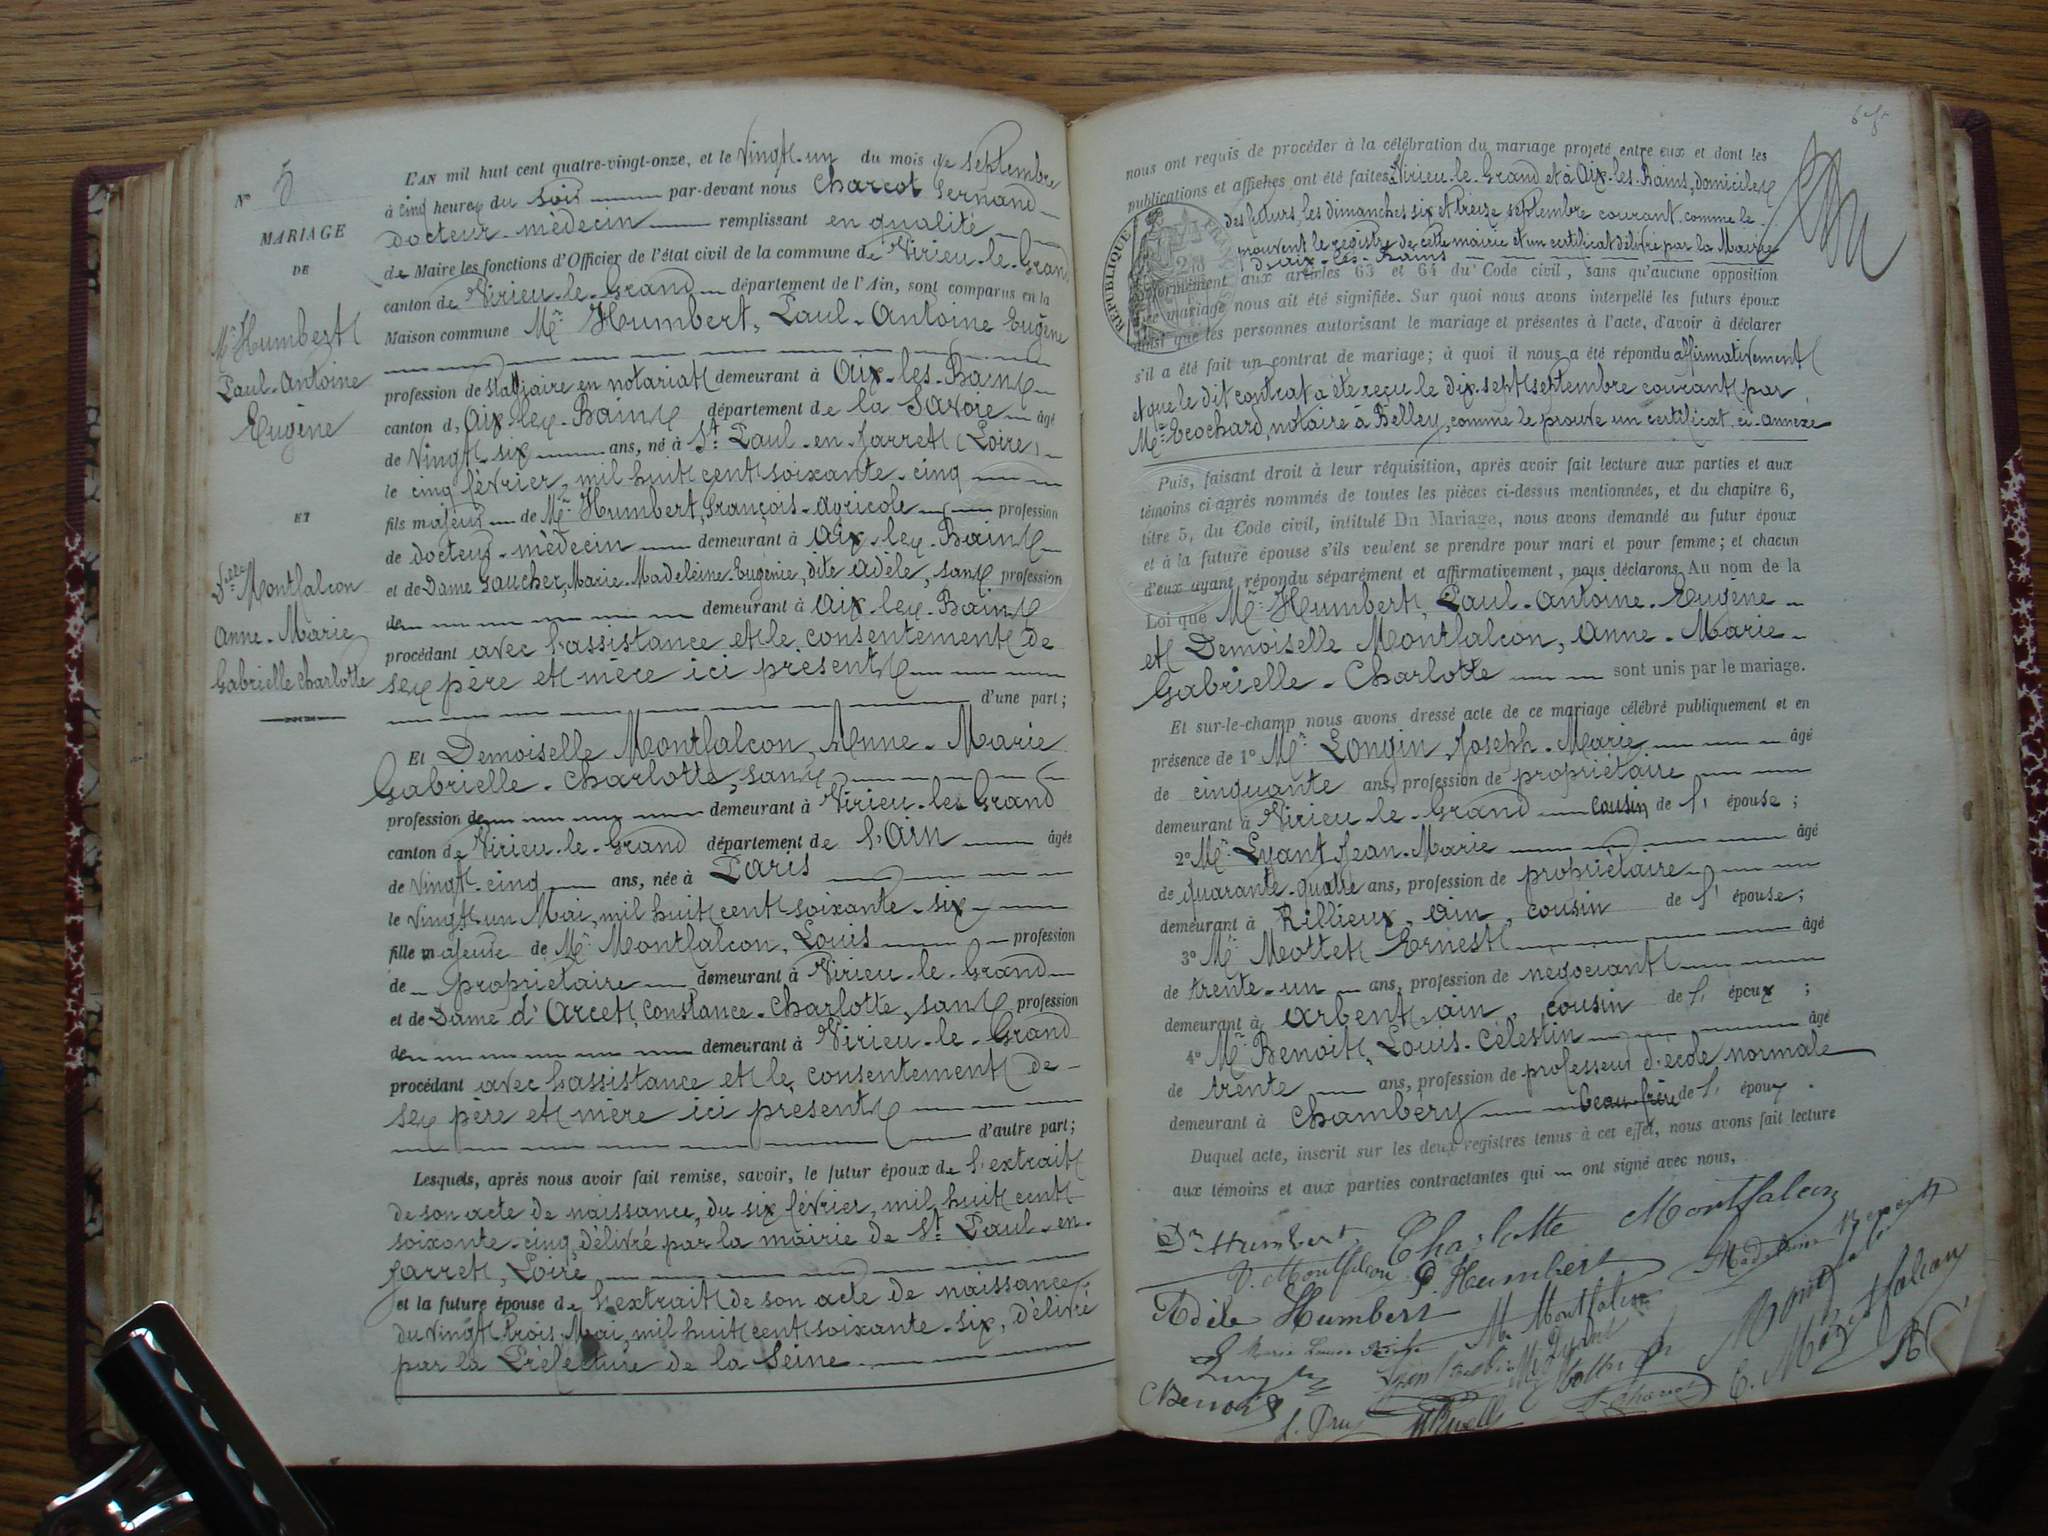 N° 5
MARIAGE
DE
Mr Humbert
Paul-Antoine
Eugène
ET
Dlle Montfalcon
Anne-Marie
Gabrielle Charlotte
L'AN mil huit cent quatre-vingt-onze, et le vingt-un du mois de septembre
à cinq heures du soir par-devant nous Charcot Fernand
Docteur-médecin remplissant en qualité
de Maire les fonctions d'Officier de l'état civil de la commune de Virieu-le-Grand
canton de Virieu-le-Grand département de l'Ain, sont comparus en la
Maison commune Mr Humbert, Paul-Antoine Eugène
profession de stagiaire en notariat demeurant à Aix-les-Bains
canton d'Aix-les-Bains département de la Savoie âgé
de vingt-six ans, né à St Paul-en-Jarret (Loire)
le cinq février mil huit cent soixante-cinq
fils majeur de Mr Humbert, François-Agricole profession
de docteur-médecin demeurant à Aix-les-Bains
et de Dame Gaucher, Marie-Madeleine-Eugénie, dite Adèle, sans profession
de demeurant à Aix-les-Bains
procédant avec l'assistance et le consentement de
ses père et mère ici présents
d'une part;
Et Demoiselle Montfalcon, Anne-Marie
Gabrielle-Charlotte, sans
profession de demeurant à Virieu-le-Grand
canton de Virieu-le-Grand département de l'Ain âgée
de vingt-cinq ans, née à Paris
le vingt-un Mai, mil huit cent soixante-six
fille majeure de Mr Montfalcon, Louis profession
de propriétaire demeurant à Virieu-le-Grand
et de Dame d'Arcet, Constance-Charlotte, sans profession
de demeurant à Virieu-le-Grand
procédant avec l'assistance et le consentement de
ses père et mère ici présents
d'autre part;
Lesquels, après nous avoir fait remise, savoir, le futur époux de l'extrait
de son acte de naissance, du six février, mil huit cent
soixante-cinq délivré par la mairie de St Paul-en-
Jarret, Loire
et la future épouse de l'extrait de son acte de naissance
du vingt trois Mai, mil huit cent soixante-six, délivré
par la Préfecture de la Seine
nous ont requis de procéder à la célébration du mariage projeté entre eux et dont les
publications et affiches ont été faites à Virieu-le-Grand et à Aix-les-Bains, domiciles
des futurs, les dimanches six et treize septembre courant comme le
prouvent le registre de cette mairie et un certificat délivré par la Mairie
d'Aix-les-Bains
RÉPUBLIQUE
conformément aux articles 63 et 64 du Code civil, sans qu'aucune opposition
à ce mariage nous ait été signifiée. Sur quoi nous avons interpellé les futurs époux
ainsi que les personnes autorisant le mariage et présentes à l'acte, d'avoir à déclarer
s'il a été fait un contrat de mariage; à quoi il nous a été répondu affirmativement
et que le dit contrat a été reçu le dix-sept septembre courant par
Me Trochard, notaire à Belley, comme le prouve un certificat ci-annexé
Puis, faisant droit à leur réquisition, après avoir fait lecture aux parties et aux
témoins ci-après nommés de toutes les pièces ci-dessus mentionnées, et du chapitre 6,
titre 5, du Code civil, intitulé Du Mariage, nous avons demandé au futur époux
et à la future épouse s'ils veulent se prendre pour mari et pour femme; et chacun
d'eux ayant répondu séparément et affirmativement, nous déclarons Au nom de la
Loi que Mr Humbert, Paul-Antoine-Eugène
et Demoiselle Montfalcon, Anne-Marie
Gabrielle-Charlotte sont unis par le mariage.
Et sur-le-champ nous avons dressé acte de ce mariage célébré publiquement et en
présence de 1° Mr Longin Joseph-Marie âgé
de cinquante ans, profession de propriétaire
demeurant à Virieu-le-Grand cousin de l'épouse;
2° Mr Lyant Jean-Marie âgé
de quarante-quatre ans, profession de propriétaire
demeurant à Rillieux, Ain, cousin de l'épouse;
3° Mr Mottet Ernest âgé
de trente-un ans, profession de négociant
demeurant à Arbent, Ain, cousin de l'époux;
4° Mr Benoit, Louis-Célestin âgé
de trente ans, profession de professeur d'école normale
demeurant à Chambéry beau-frère de l'époux.
Duquel acte, inscrit sur les deux registres tenus à cet effet, nous avons fait lecture
aux témoins et aux parties contractantes qui ont signé avec nous,
Dr Humbert Charlotte Montfalcon
V. Montfalcon P. Humbert Madeleine Benoit
Adèle Humbert M. Montfalcon
Benoit